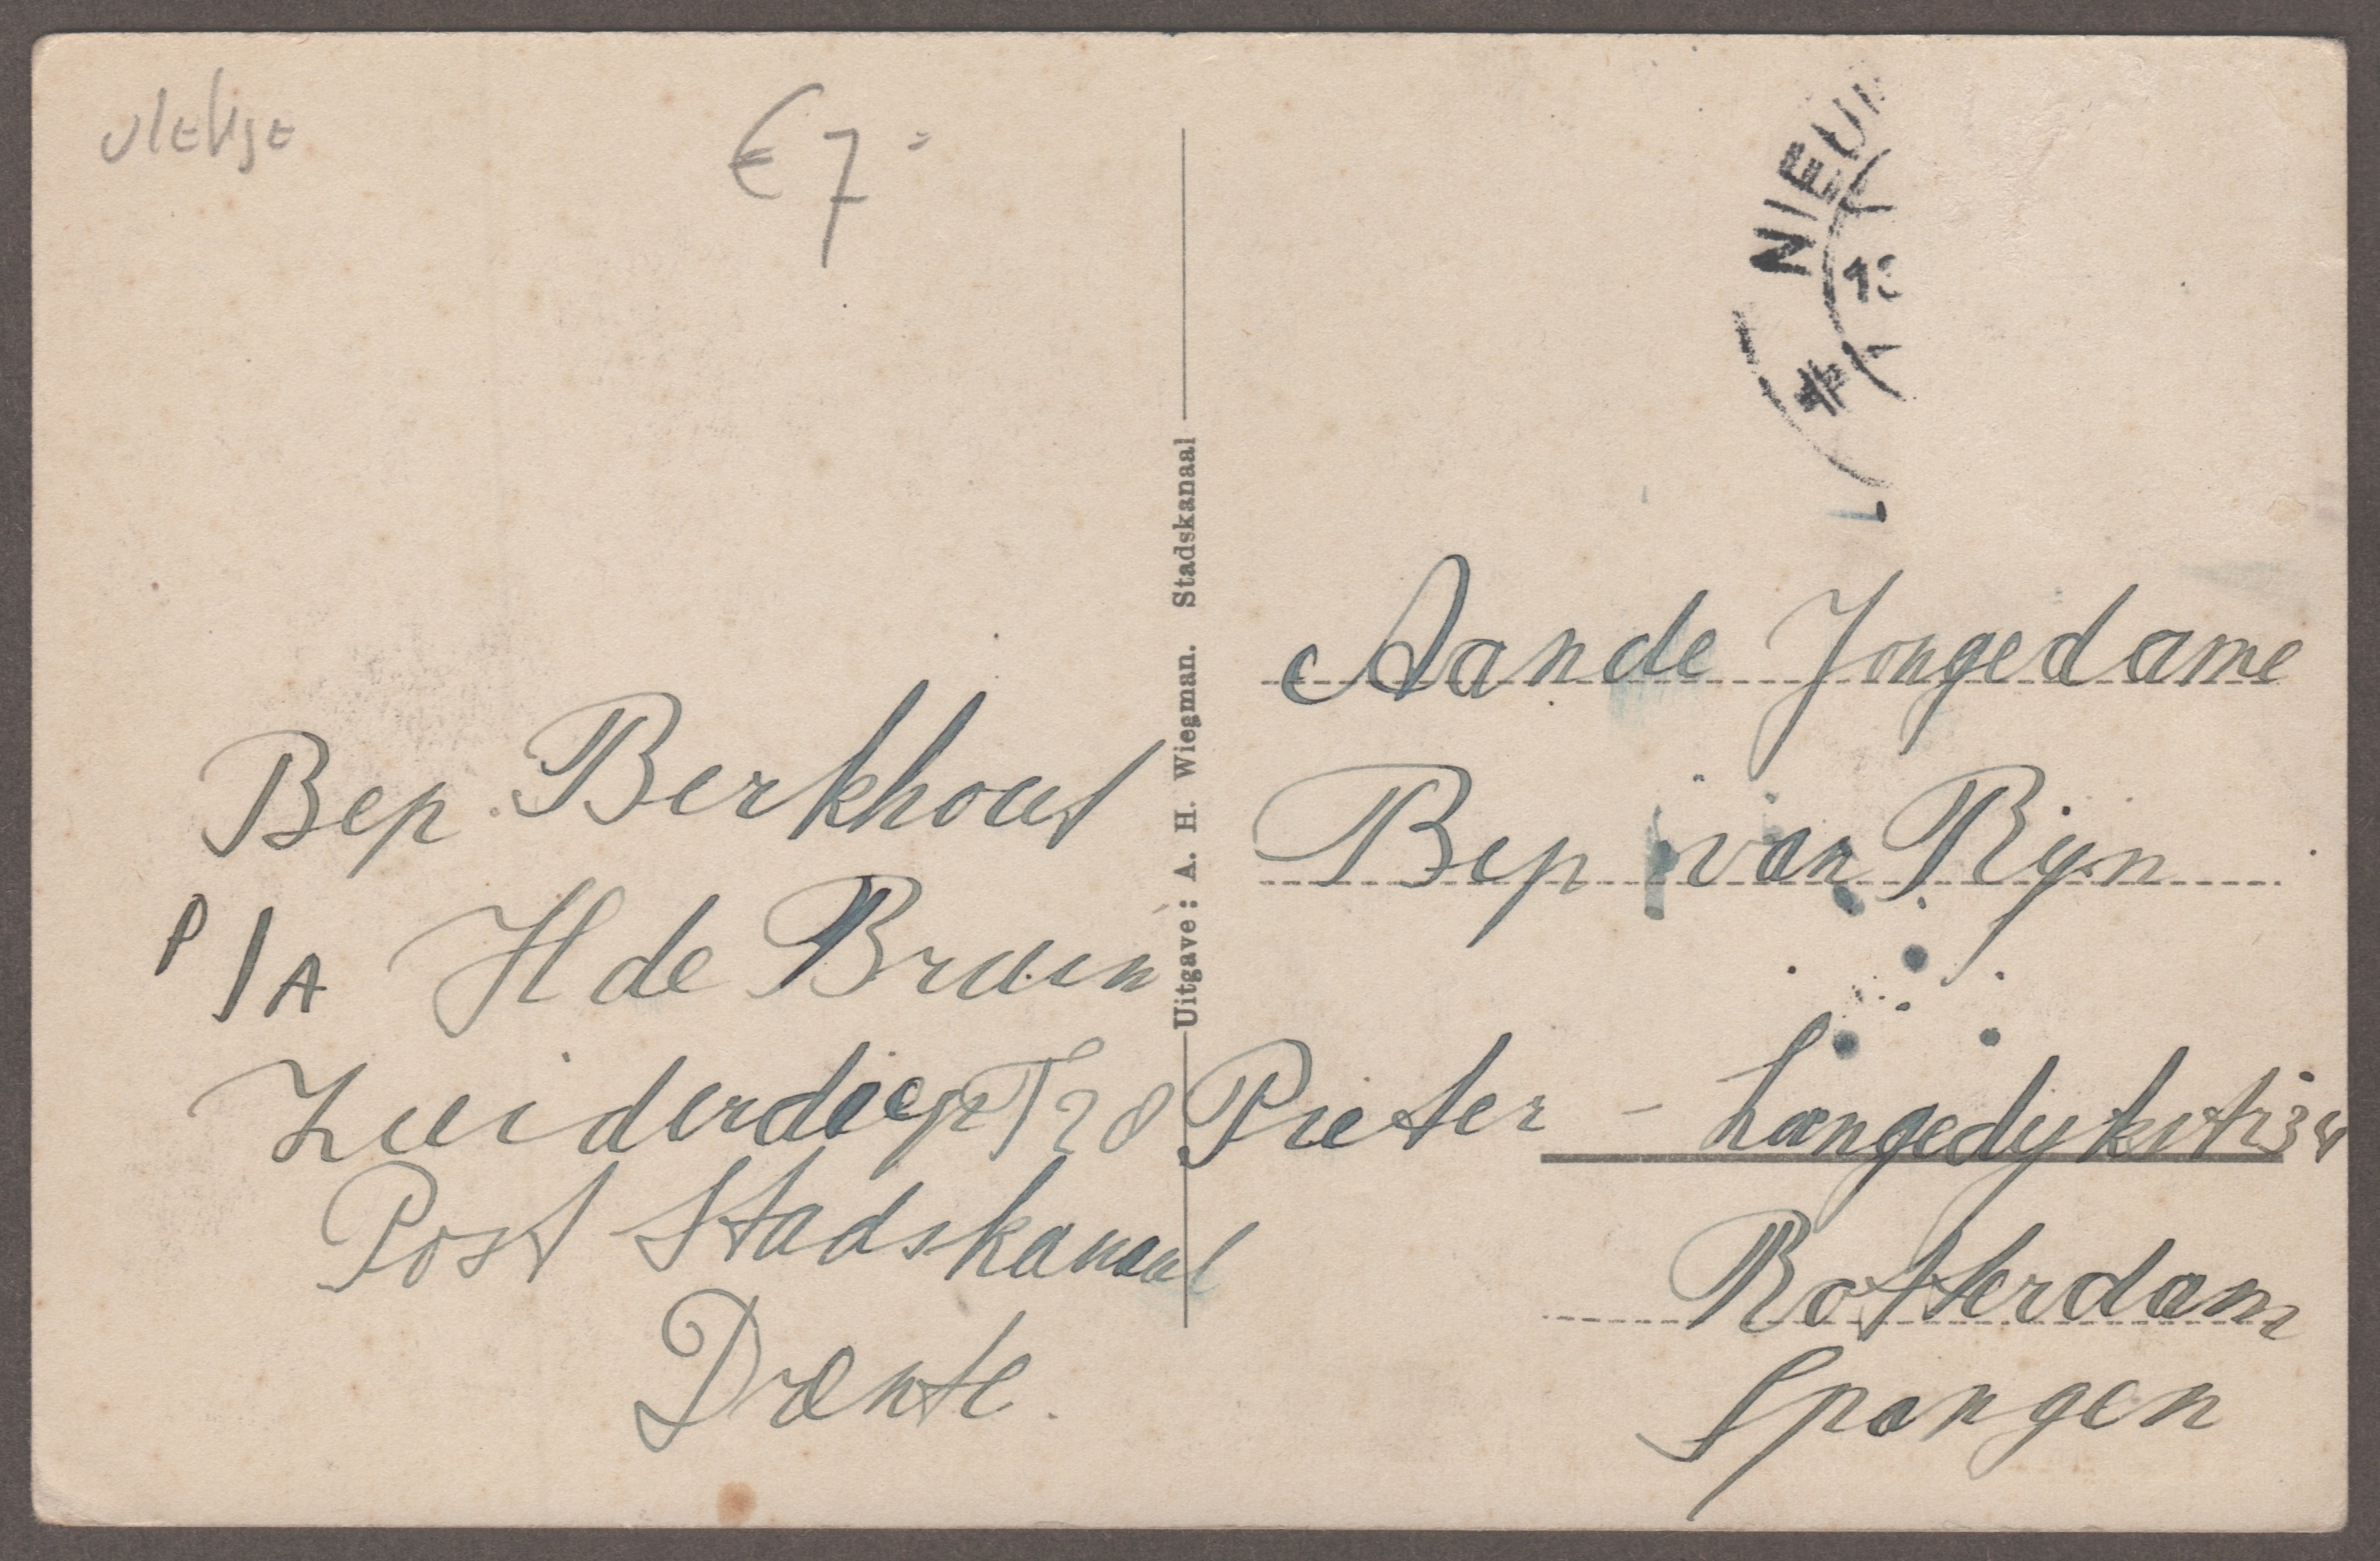 vlekje
€ 7 =
NIEUW
13
Bep Berkhout
P/A H de Bruin
Zuiderdiep T28
Post Stadskanaal
Drente.
Uitgave: A. H. Wiegman. Stadskanaal
Aan de Jongedame
Bep van Rijn
Pieter - Langedykstr 34
Rotterdam
Spangen